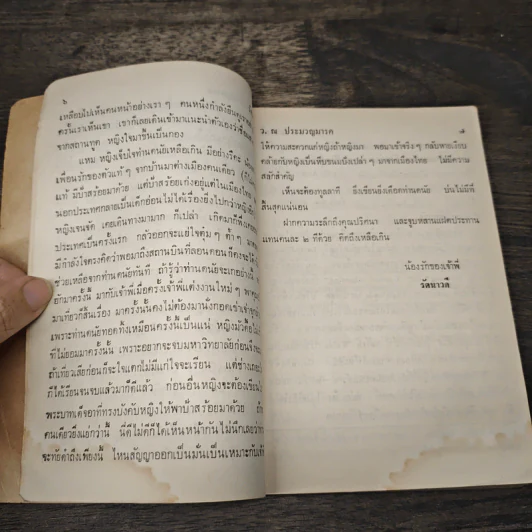 ๖
เหลียบไปเห็นคนหน้าอย่างเรา ๆ คนหนึ่งกำลังยืน
ครั้นเราเห็นเขา เขาก็เลยเดินเข้ามาแนะนำตัวเองว่า
จากสถานทูต หญิงใจมาขึ้นเป็นกอง
แหม หญิงเจ็บใจท่านคนัยเหลือเกิน มีอย่างรึคะ
เพื่อนรักของตัวแท้ ๆ จากบ้านมาต่างเมืองคนเดียว
แท้ มีป้าสร้อยมาด้วย แต่ป้าสร้อยเก่งอยู่แต่ในเมืองไทย
นอกประเทศกลายเป็นเด็กอ่อนไม่ได้เรื่องยิ่งไปกว่าหญิง
หญิงเจนจัด เคยเดินทางมามาก ก็เปล่า เกิดมาก็
ประเทศเป็นครั้งแรก กลัวออกจะแย่ใจตุ้ม ๆ ต้ำ ๆ มา
มีกำลังใจคงคิดว่าพอมาถึงสถานบินที่ลอนดอนก็คงจะได้
ช่วยเหลือจากท่านคนัยทันที ถ้ารู้ว่าท่านคนัยจะเกเรอย่างนี้
ยักมาครั้งนี้ มากับเจ้าพี่เมื่อครั้งเจ้าพี่แต่งงานใหม่ ๆ
มาเที่ยวก็สิ้นเรื่อง มาครั้งนั้นคงไม่ต้องมานั่งกอดเข่า
เพราะท่านคนัยทอดทิ้งเหมือนครั้งนี้เป็นแน่ หญิงมัว
ที่ไม่ยอมมาครั้งนั้น เพราะอยากจะจบมหาวิทยาลัยก่อน
ถ้าเที่ยวเสียก่อนก็จะใจแตกไม่มีแก่ใจจะเรียน แต่ช่าง
ก็ได้เรียนจนจบแล้วมาก็ดีแล้ว ก่อนอื่นหญิงจะต้องเขียน
พระบาทเด็จอาที่ทรงบังคับหญิงให้พาป้าสร้อยมาด้วย
คนเดียวยิ่งแย่กว่านี้ นี่ดีไม่ดีก็ได้เห็นหน้ากัน ไม่นึกเลยว่า
จะทัยดำถึงเพียงนี้ ไหนสัญญาออกเป็นมั่นเป็นเหมาะกับ
ว. ณ ประมวญมารค
๗
ให้ความสะดวกแก่หญิงถ้าหญิงมา พอมาเข้าจริง ๆ กลับหายเงียบ
คล้ายกับหญิงเป็นหีบขนมปังเปล่า ๆ มาจากเมืองไทย ไม่มีความ
สลักสำคัญ
เห็นจะต้องทูลลาที ยิ่งเขียนยิ่งเดือดท่านคนัย บ่นไม่มีที่
สิ้นสุดแน่นอน
ฝากความระลึกถึงคุณปริศนา และจูบหลานแฝดประทาน
แทนคนละ ๒ ทีด้วย คิดถึงเหลือเกิน
น้องรักของเจ้าพี่
รัตนาวดี